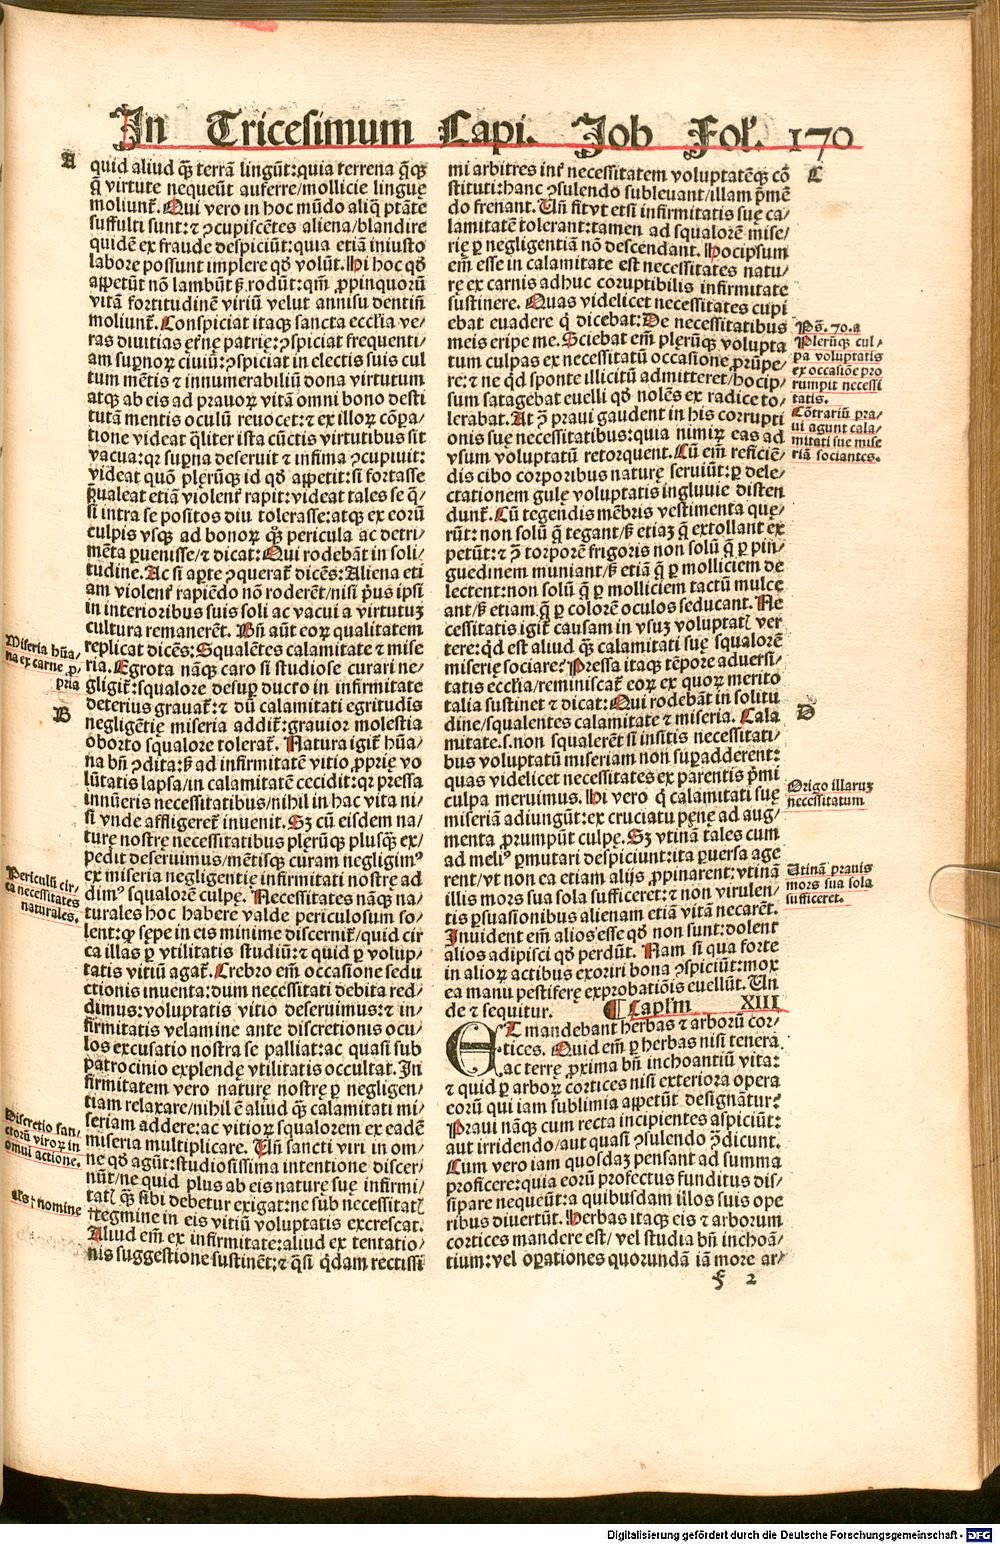 In Tricesimum Capi. Job Fol. 170
A
quid aliud q̃ȝ terrã lingũt: quia terrena q̃q̃ȝ
q̃ virtute nequeũt auferre/mollicie linguę
moliunt᷑. Qui vero in hoc mũdo aliq̃ ptãte
suffulti sunt: ⁊ ꝯcupiscẽtes aliena/blandire
quidẽ ex fraude despiciũt: quia etiã iniusto
labore possunt implere qď volũt. Hi hoc qď
appetũt nõ lambũt sꝫ rodũt: qm̃ ꝓpinquorũ
vitã fortitudinẽ viriũ velut annisu dentiũ
moliunt᷑. Conspiciat itaqꝫ sancta eccľia ve/
ras diuitias etẽnę patrię: ꝯspiciat frequenti/
am supnoꝝ ciuiũ: ꝯspiciat in electis suis cul
tum mẽtis ⁊ innumerabiliũ dona virtutum
atqꝫ ab eis ad prauoꝝ vitã omni bono desti
tutã mentis oculũ reuocet: ⁊ ex illoꝝ cõpa/
tione videat q̃liter ista cũctis virtutibus sit
vacua: qꝛ supna deseruit ⁊ infima ꝯcupiuit:
videat quõ plerũqꝫ id qď appetit: si fortasse
p̃ualeat etiã violent᷑ rapit: videat tales se q̃/
si intra se positos diu tolerasse: atqꝫ ex eorũ
culpis vsqꝫ ad bonoꝝ q̃ȝ pericula ac detri/
mẽta ꝑuenisse/⁊ dicat: Qui rodebãt in soli/
tudine. Ac si apte ꝯquerat᷑ dicẽs: Aliena eti
am violent᷑ rapiẽdo nõ roderẽt/nisi p̃us ipsi
in interioribus suis soli ac vacui a virtutuȝ
cultura remanerẽt. Bñ aũt eoꝝ qualitatem
replicat dicẽs: Squalẽtes calamitate ⁊ mise
ria. Egrota nãqꝫ caro si studiose curari ne/
gligit᷑: squalore desuꝑ ducto in infirmitate
deterius grauat᷑: ⁊ dũ calamitati egritudis
negligẽtię miseria addit᷑: grauior molestia
oborto squalore tolerat᷑. Natura igit᷑ hũa/
na bñ ꝯdita: sꝫ ad infirmitatẽ vitio ꝓprię vo
lũtatis lapsa/in calamitatẽ cecidit: qꝛ pressa
innũeris necessitatibus/nihil in hac vita ni/
si vnde affligeret᷑ inuenit. Sꝫ cũ eisdem na/
turę nostrę necessitatibus plerũqꝫ plusq̃ȝ ex/
pedit deseruimus/mẽtisqꝫ curam negligimꝰ
ex miseria negligentię infirmitati nostrę ad
dimꝰ squalorẽ culpę. Necessitates nãqꝫ na/
turales hoc habere valde periculosum so/
lent: ꝙ sępe in eis minime discernit᷑/quid cir
ca illas ꝑ vtilitatis studiũ: ⁊ quid ꝑ volup/
tatis vitiũ agat᷑. Crebro em̃ occasione sedu
ctionis inuenta: dum necessitati debita red/
dimus: voluptatis vitio deseruimus: ⁊ in/
firmitatis velamine ante discretionis ocu/
los excusatio nostra se palliat: ac quasi sub
patrocinio explendę vtilitatis occultat. In
firmitatem vero naturę nostrę ꝑ negligen/
tiam relaxare/nihil ẽ aliud q̃ȝ calamitati mi/
seriam addere: ac vitioꝝ squalorem ex eadẽ
miseria multiplicare. Uñ sancti viri in om/
ne qď agũt: studiosissima intentione discer/
nũt/ne quid plus ab eis naturę suę infirmi/
tatꝭ q̃ȝ sibi debetur exigat: ne sub necessitatꝭ
†tegmine in eis vitiũ voluptatis excrescat.
Aliud em̃ ex infirmitate: aliud ex tentatio/
nis suggestione sustinẽt: ⁊ q̃si q̃dam rectissi
Miseria hũa/
na ex carne ꝓ/
pria
B
Periculũ cir/
ca necessitates
naturales.
Discretio san/
ctorũ viroꝝ in
omni actione.
als: nomine
mi arbitres int᷑ necessitatem voluptatẽqꝫ cõ
stituti: hanc ꝯsulendo subleuant/illam p̃mẽ
do frenant. Uñ fit vt etsi infirmitatis suę ca/
lamitatẽ tolerant: tamen ad squalorẽ mise/
rię ꝑ negligentiã nõ descendant. Hoc ipsum
em̃ esse in calamitate est necessitates natu/
rę ex carnis adhuc coruptibilis infirmitate
sustinere. Quas videlicet necessitates cupi
ebat euadere q̇ dicebat: De necessitatibus
meis eripe me. Sciebat em̃ plerũqꝫ volupta
tum culpas ex necessitatũ occasione ꝓrũpe/
re: ⁊ ne q̇d sponte illicitũ admitteret/hoc ip/
sum satagebat euelli qď nolẽs ex radice to/
lerabat. At ꝯ̃ praui gaudent in his corrupti
onis suę necessitatibus: quia nimiꝝ eas ad
vsum voluptatũ retorquent. Cũ em̃ reficiẽ/
dis cibo corporibus naturę seruiũt: ꝑ dele/
ctationem gulę voluptatis ingluuie disten
dunt᷑. Cũ tegendis mẽbris vestimenta quę/
rũt: non solũ q̃ tegant/sꝫ etiaȝ q̃ extollant ex
petũt: ⁊ ꝯ̃ torporẽ frigoris non solũ q̃ ꝑ pin/
guedinem muniant/sꝫ etiã q̃ ꝑ molliciem de
lectent: non solũ q̃ ꝑ molliciem tactũ mulce
ant/sꝫ etiam q̃ ꝑ colorẽ oculos seducant. Ne
cessitatis igit᷑ causam in vsuȝ voluptatꝭ ver
tere: q̇d est aliud q̃ȝ calamitati suę squalorẽ
miserię sociare? Pressa itaqꝫ tẽpore aduersi/
tatis eccľia/reminiscat᷑ eoꝝ ex quoꝝ merito
talia sustinet ⁊ dicat: Qui rodebãt in solitu
dine/squalentes calamitate ⁊ miseria. Cala
mitate.s.non squalerẽt si insitis necessitati/
bus voluptatũ miseriam non supadderent:
quas videlicet necessitates ex parentis p̃mi
culpa meruimus. Hi vero q̇ calamitati suę
miseriã adiungũt: ex cruciatu pęnę ad aug/
menta ꝓrumpũt culpę. Sꝫ vtinã tales cum
ad meliꝰ ꝑmutari despiciunt: ita ꝑuersa age
rent/vt non ea etiam alijs ꝓpinarent: vtinã
illis mors sua sola sufficeret: ⁊ non virulen/
tis ꝑsuasionibus alienam etiã vitã necarẽt.
Inuident em̃ alios esse qď non sunt: dolent
alios adipisci qď perdũt. Nam si qua forte
in alioꝝ actibus exoriri bona ꝯspiciũt: mox
ea manu pestiferę exprobatiõis euellũt. Un
de ⁊ sequitur. ¶ Caplm XIII
ET mandebant herbas ⁊ arborũ cor/
tices. Quid em̃ ꝑ herbas nisi tenera
ac terrę ꝓxima bñ inchoantiũ vita:
⁊ quid ꝑ arboꝝ cortices nisi exteriora opera
eorũ qui iam sublimia appetũt designãtur?
Praui nãqꝫ cum recta incipientes aspiciũt:
aut irridendo/aut quasi ꝯsulendo ꝯ̃dicunt.
Cum vero iam quosdaȝ pensant ad summa
proficere: quia eorũ profectus funditus dis/
sipare nequeũt: a quibusdam illos suis ope
ribus diuertũt. Herbas itaqꝫ eis ⁊ arborum
cortices mandere est/ vel studia bñ inchoã/
tium: vel opationes quorundã iã more ar/
C
Ps. 70.a
Plerũqꝫ cul/
pa voluptatis
ex occasiõe pro
rumpit necessi
tatis.
Cõtrariũ pra/
ui agunt cala/
mitati sue mise
riã sociantes.
D
Origo illaruȝ
necessitatum
Utinã prauis
mors sua sola
sufficeret.
ꝟ 2
Digitalisierung gefördert durch die Deutsche Forschungsgemeinschaft - DFG